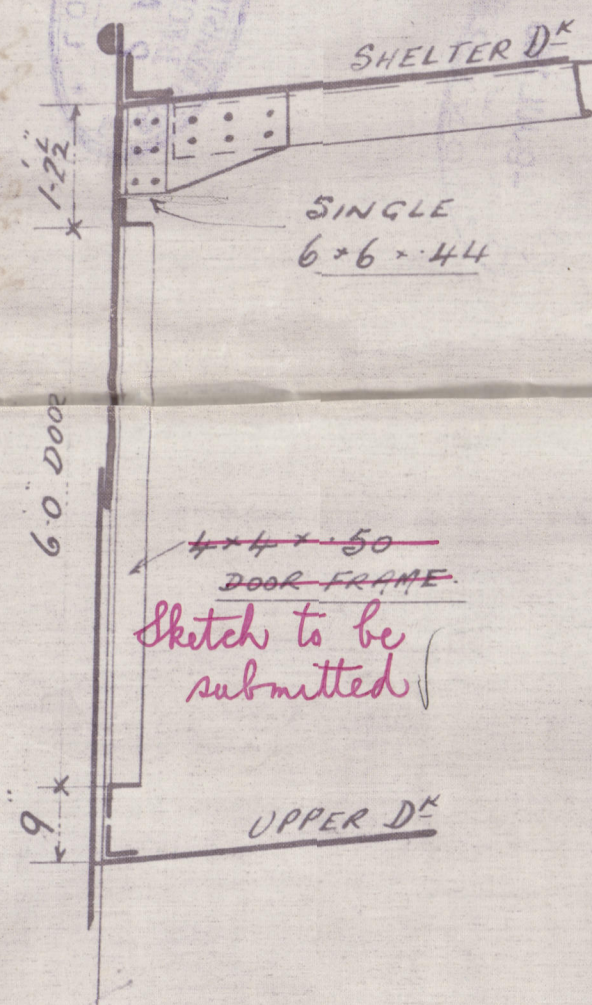 SHELTER DK
1-2½"
SINGLE
6 × 6 × .44
6.0" DOOR
4×4 × .50
DOOR FRAME.
Sketch to be
submitted
9"
UPPER DK